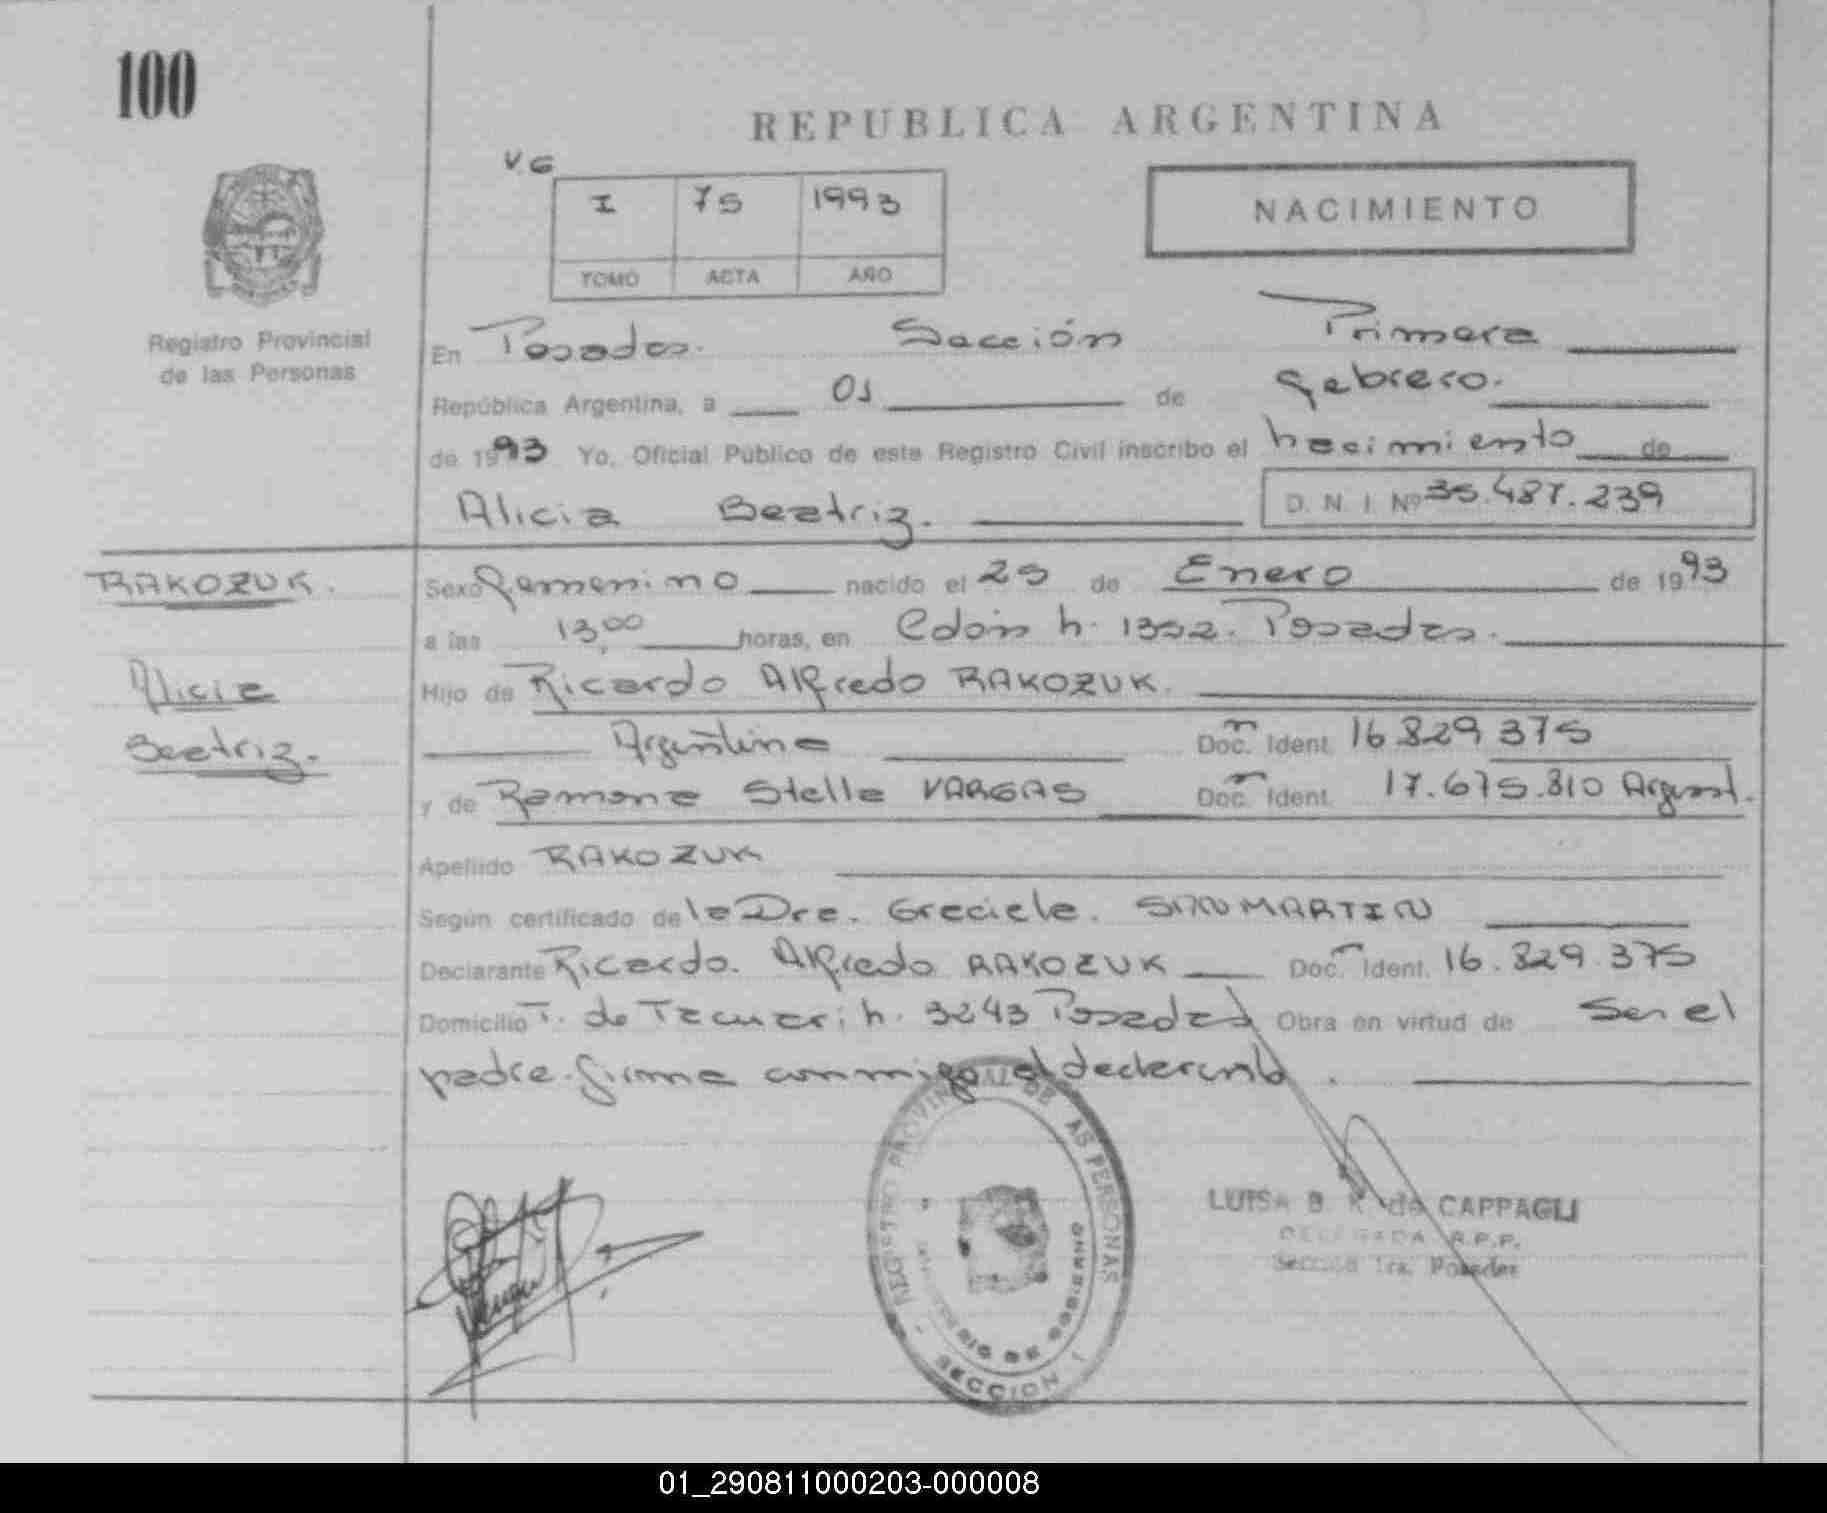 100
REPUBLICA ARGENTINA
V.G
I 75 1993
TOMO ACTA AÑO
NACIMIENTO
Registro Provincial
de las Personas
En Posadas. Sección Primera
República Argentina, a 01 de febrero.
de 1993 Yo, Oficial Público de este Registro Civil inscribo el nacimiento de
Alicia Beatriz. D. N. I. Nº 35.487.239
RAKOZUK.
Alicia
Beatriz.
Sexo femenino nacido el 25 de Enero de 1993
a las 13,00 horas, en Colón n. 1352. Posadas.
Hijo de Ricardo Alfredo RAKOZUK.
Argentino Doc. Ident. 16.829.375
y de Ramona Stella VARGAS Doc. Ident. 17.675.810 Argent.
Apellido RAKOZUK
Según certificado de la Dra. Graciela. SANMARTIN
Declarante Ricardo. Alfredo RAKOZUK Doc. Ident. 16.829.375
Domicilio T. de Tacuari n. 3243 Posadas Obra en virtud de Ser el
padre. firma conmigo el declarante.
REGISTRO PROVINCIAL DE LAS PERSONAS
MINISTERIO DE GOBIERNO
SECCION 1
LUISA B. K. de CAPPAGLI
DELEGADA R.P.P.
Sección 1ra. Posadas
01_290811000203-000008